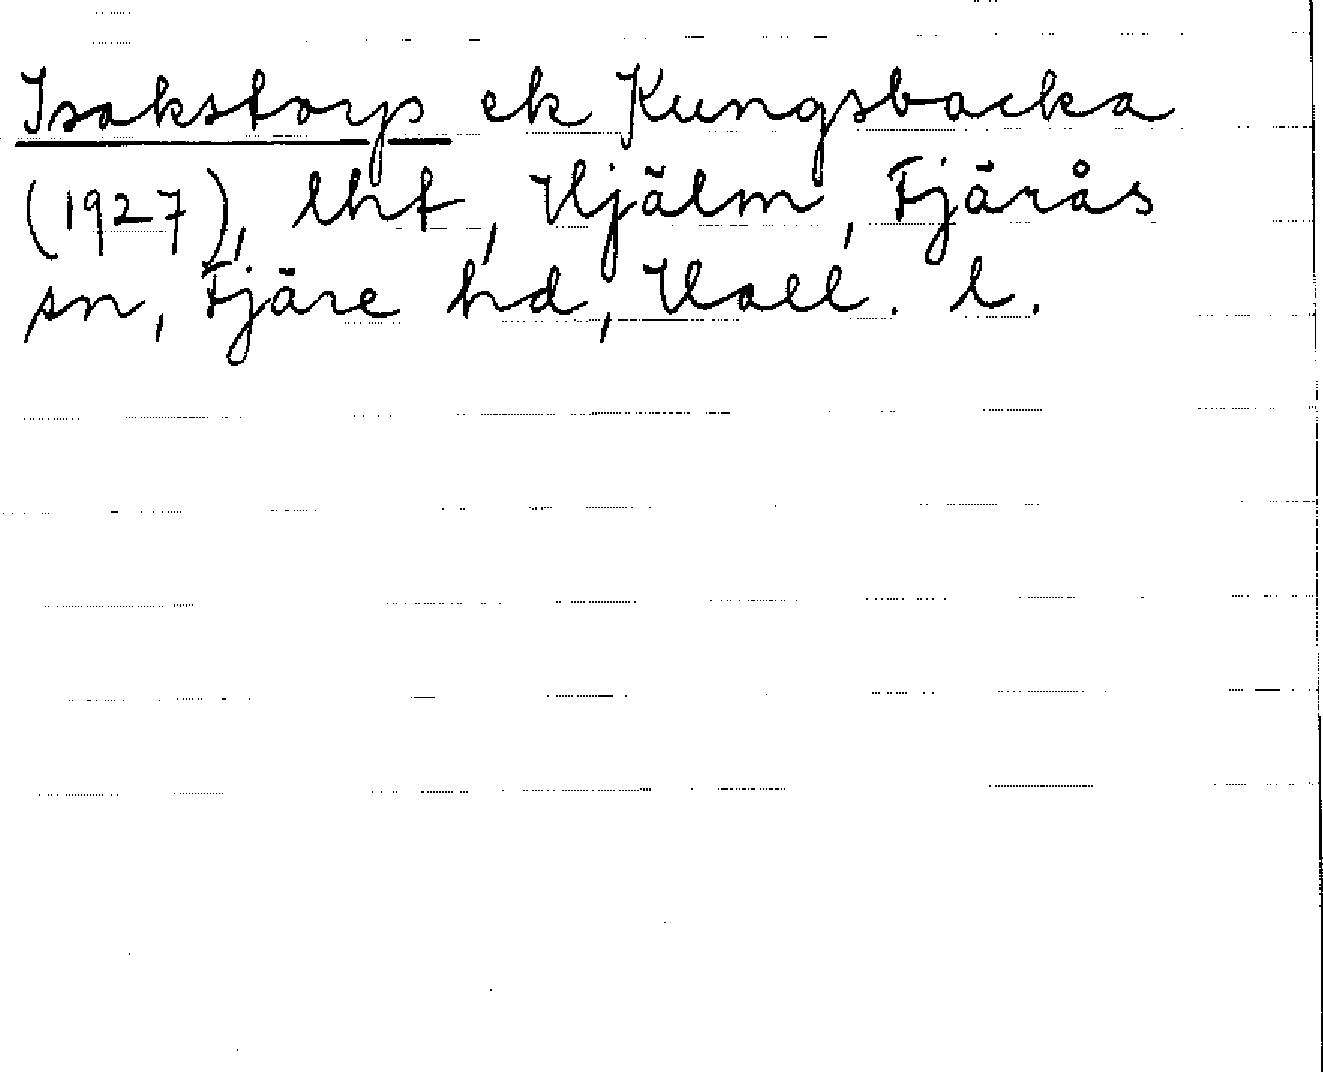 Isakstorp ek Kungsbacka
(1927), lht, Hjälm, Fjärås
sn, Fjäre hd, Hall. l.